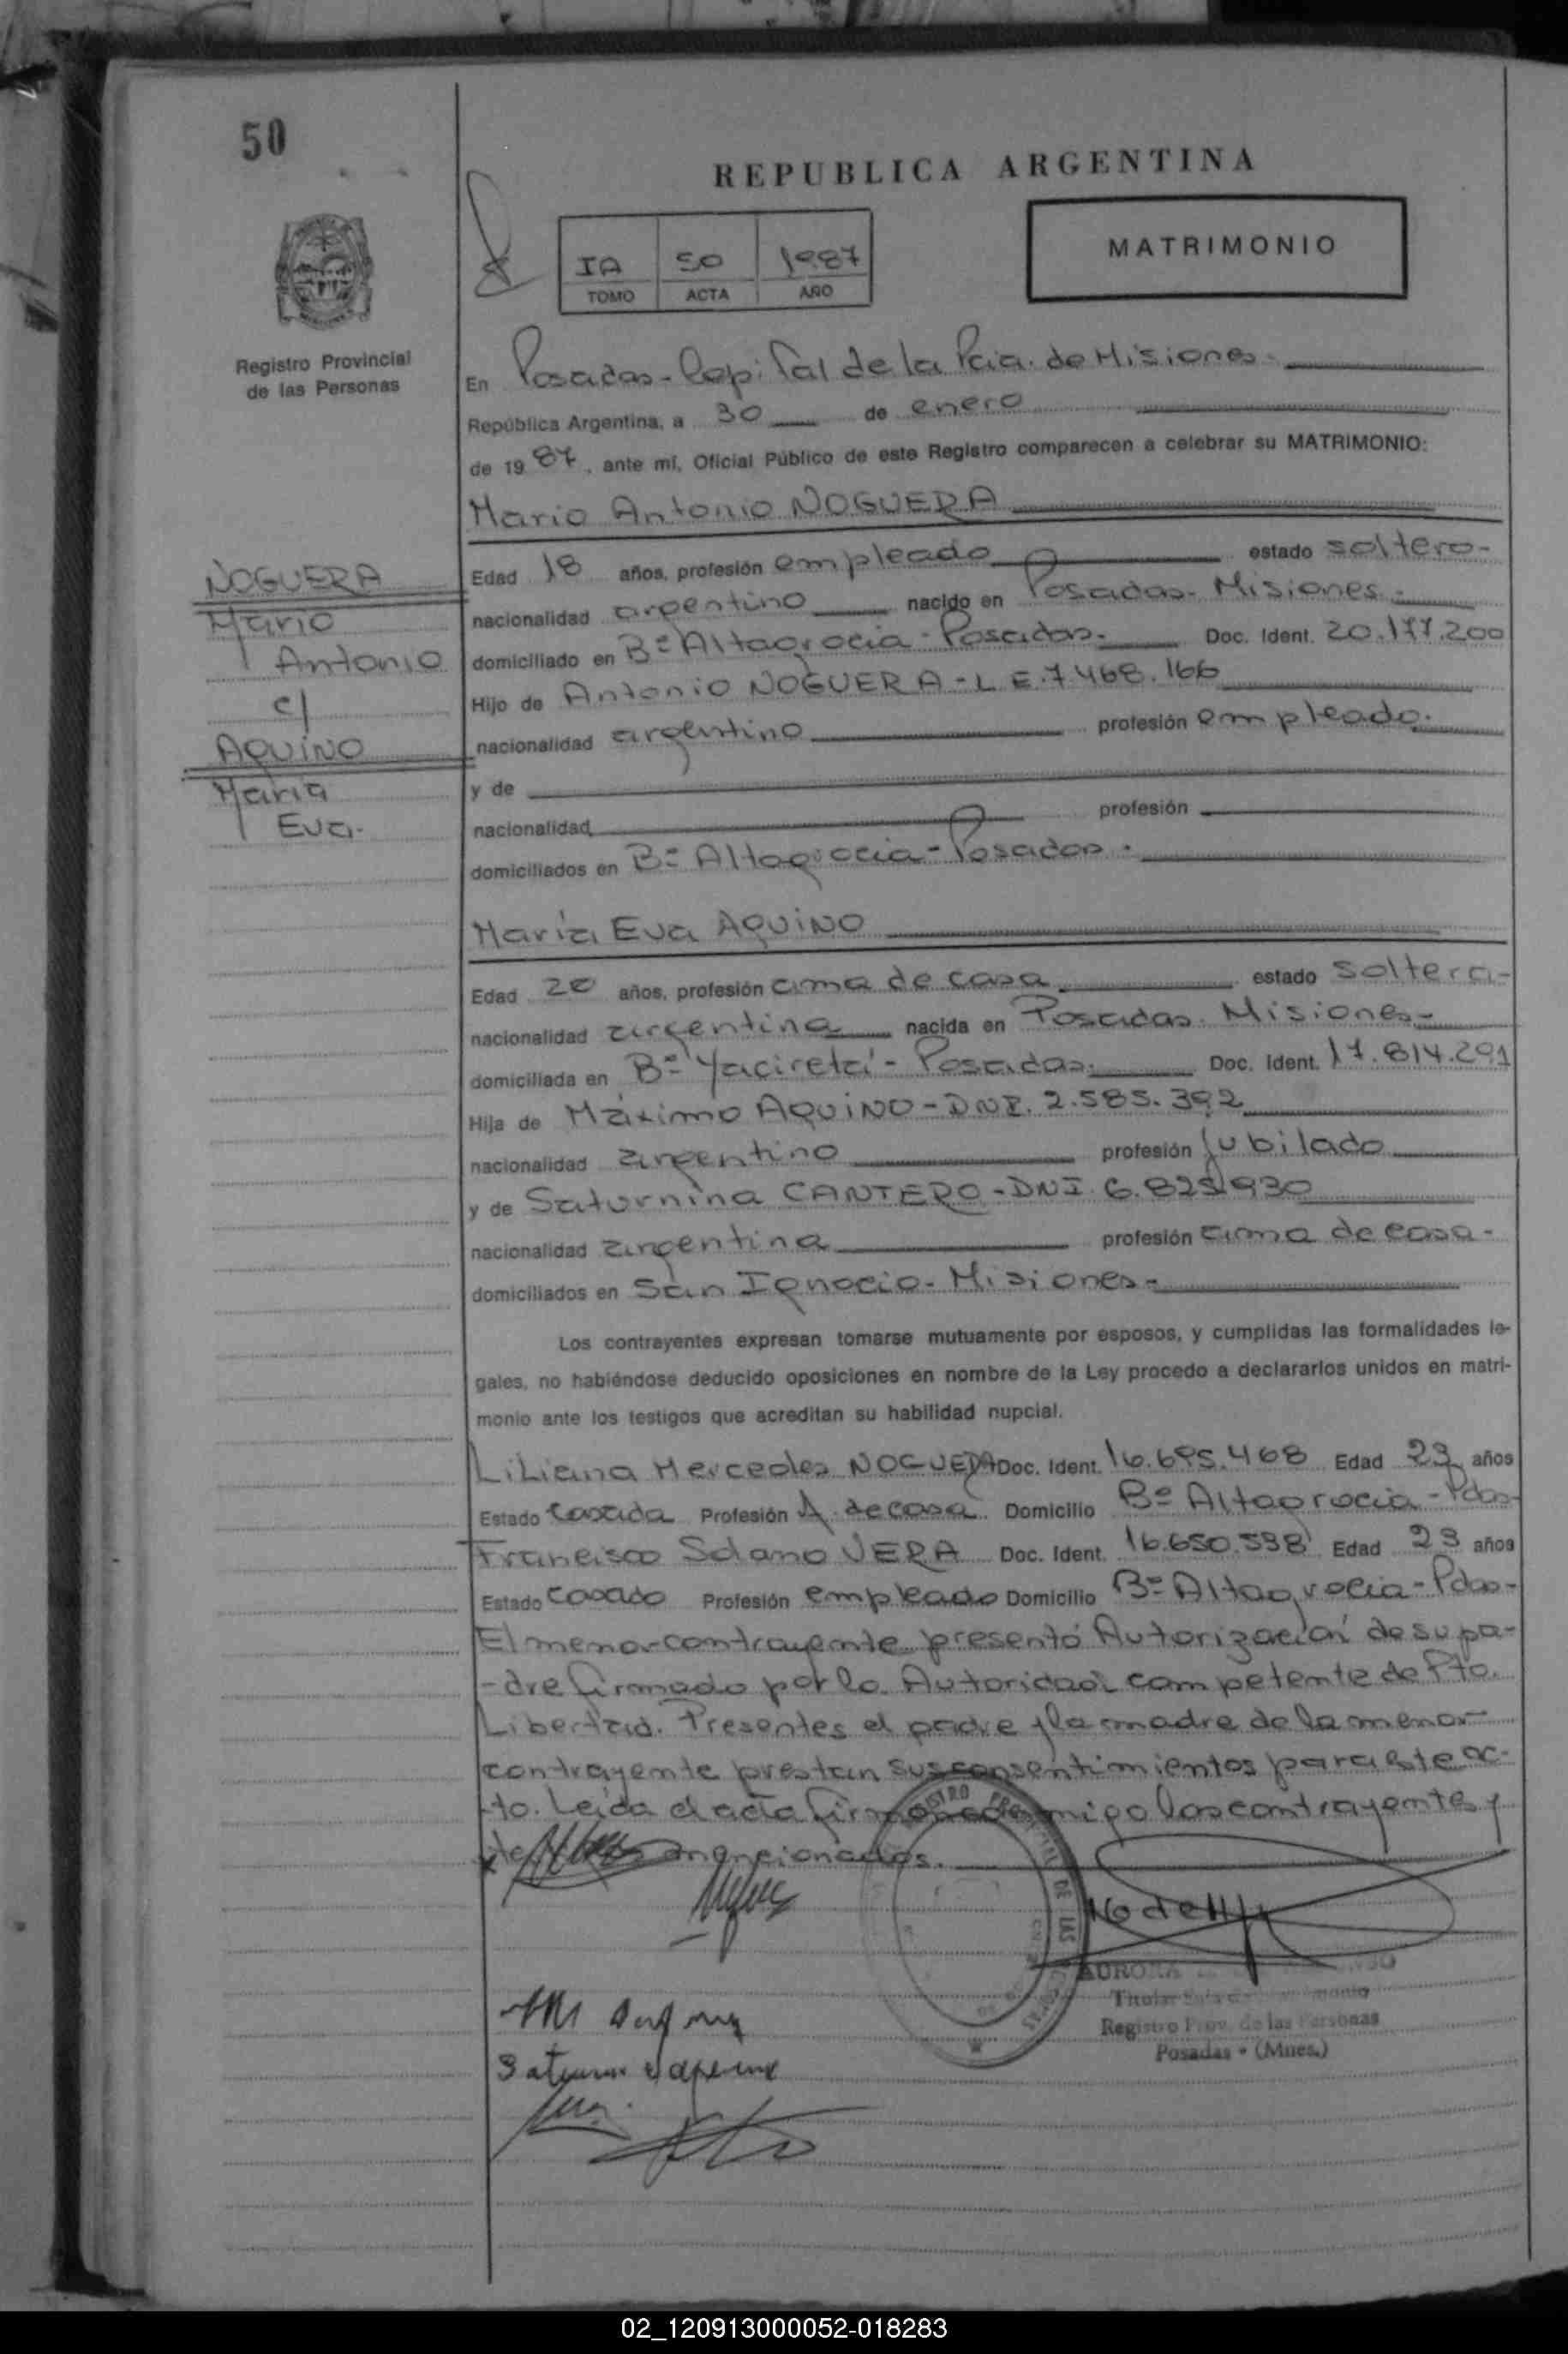 50
REPUBLICA ARGENTINA
IA 50 1987
TOMO ACTA AÑO
MATRIMONIO
Registro Provincial
de las Personas
En Posadas-Capital de la Pcia. de Misiones-
República Argentina, a 30 de enero
de 1987, ante mí, Oficial Público de este Registro comparecen a celebrar su MATRIMONIO:
Mario Antonio NOGUERA
NOGUERA
Mario
Antonio
c/
AQUINO
María
Eva-
Edad 18 años, profesión empleado estado soltero-
nacionalidad argentino nacido en Posadas-Misiones-
domiciliado en Bº Altagracia-Posadas- Doc. Ident. 20.177.200
Hijo de Antonio NOGUERA-L.E. 7.468.166
nacionalidad argentino profesión empleado.
y de
nacionalidad profesión
domiciliados en Bº Altagracia-Posadas-
María Eva AQUINO
Edad 20 años, profesión ama de casa estado soltera-
nacionalidad argentina nacida en Posadas. Misiones-
domiciliada en Bº Yacireta'-Posadas. Doc. Ident. 17.814.291
Hija de Máximo AQUINO-DNI. 2.585.392
nacionalidad argentino profesión jubilado
y de Saturnina CANTERO-DNI 6.825.930
nacionalidad argentina profesión ama de casa-
domiciliados en San Ignacio-Misiones-
Los contrayentes expresan tomarse mutuamente por esposos, y cumplidas las formalidades le-
gales, no habiéndose deducido oposiciones en nombre de la Ley procedo a declararlos unidos en matri-
monio ante los testigos que acreditan su habilidad nupcial.
Liliana Mercedes NOGUERA Doc. Ident. 16.695.468 Edad 23 años
Estado casada Profesión A. de casa Domicilio Bº Altagracia-Pdas-
Francisco Solano VERA Doc. Ident. 16.650.598 Edad 23 años
Estado casado Profesión empleado Domicilio Bº Altagracia-Pdas-
El menor contrayente presentó Autorización de su pa-
-dre firmado por la Autoridad competente de Pto.
Libertad. Presentes el padre y la madre de la menor
contrayente prestan sus consentimientos para este ac-
-to. Leída el acta firman conmigo los contrayentes y
mencionados.
AURORA
Titular
Registro Prov. de las Personas
Posadas - (Mnes.)
02_120913000052-018283